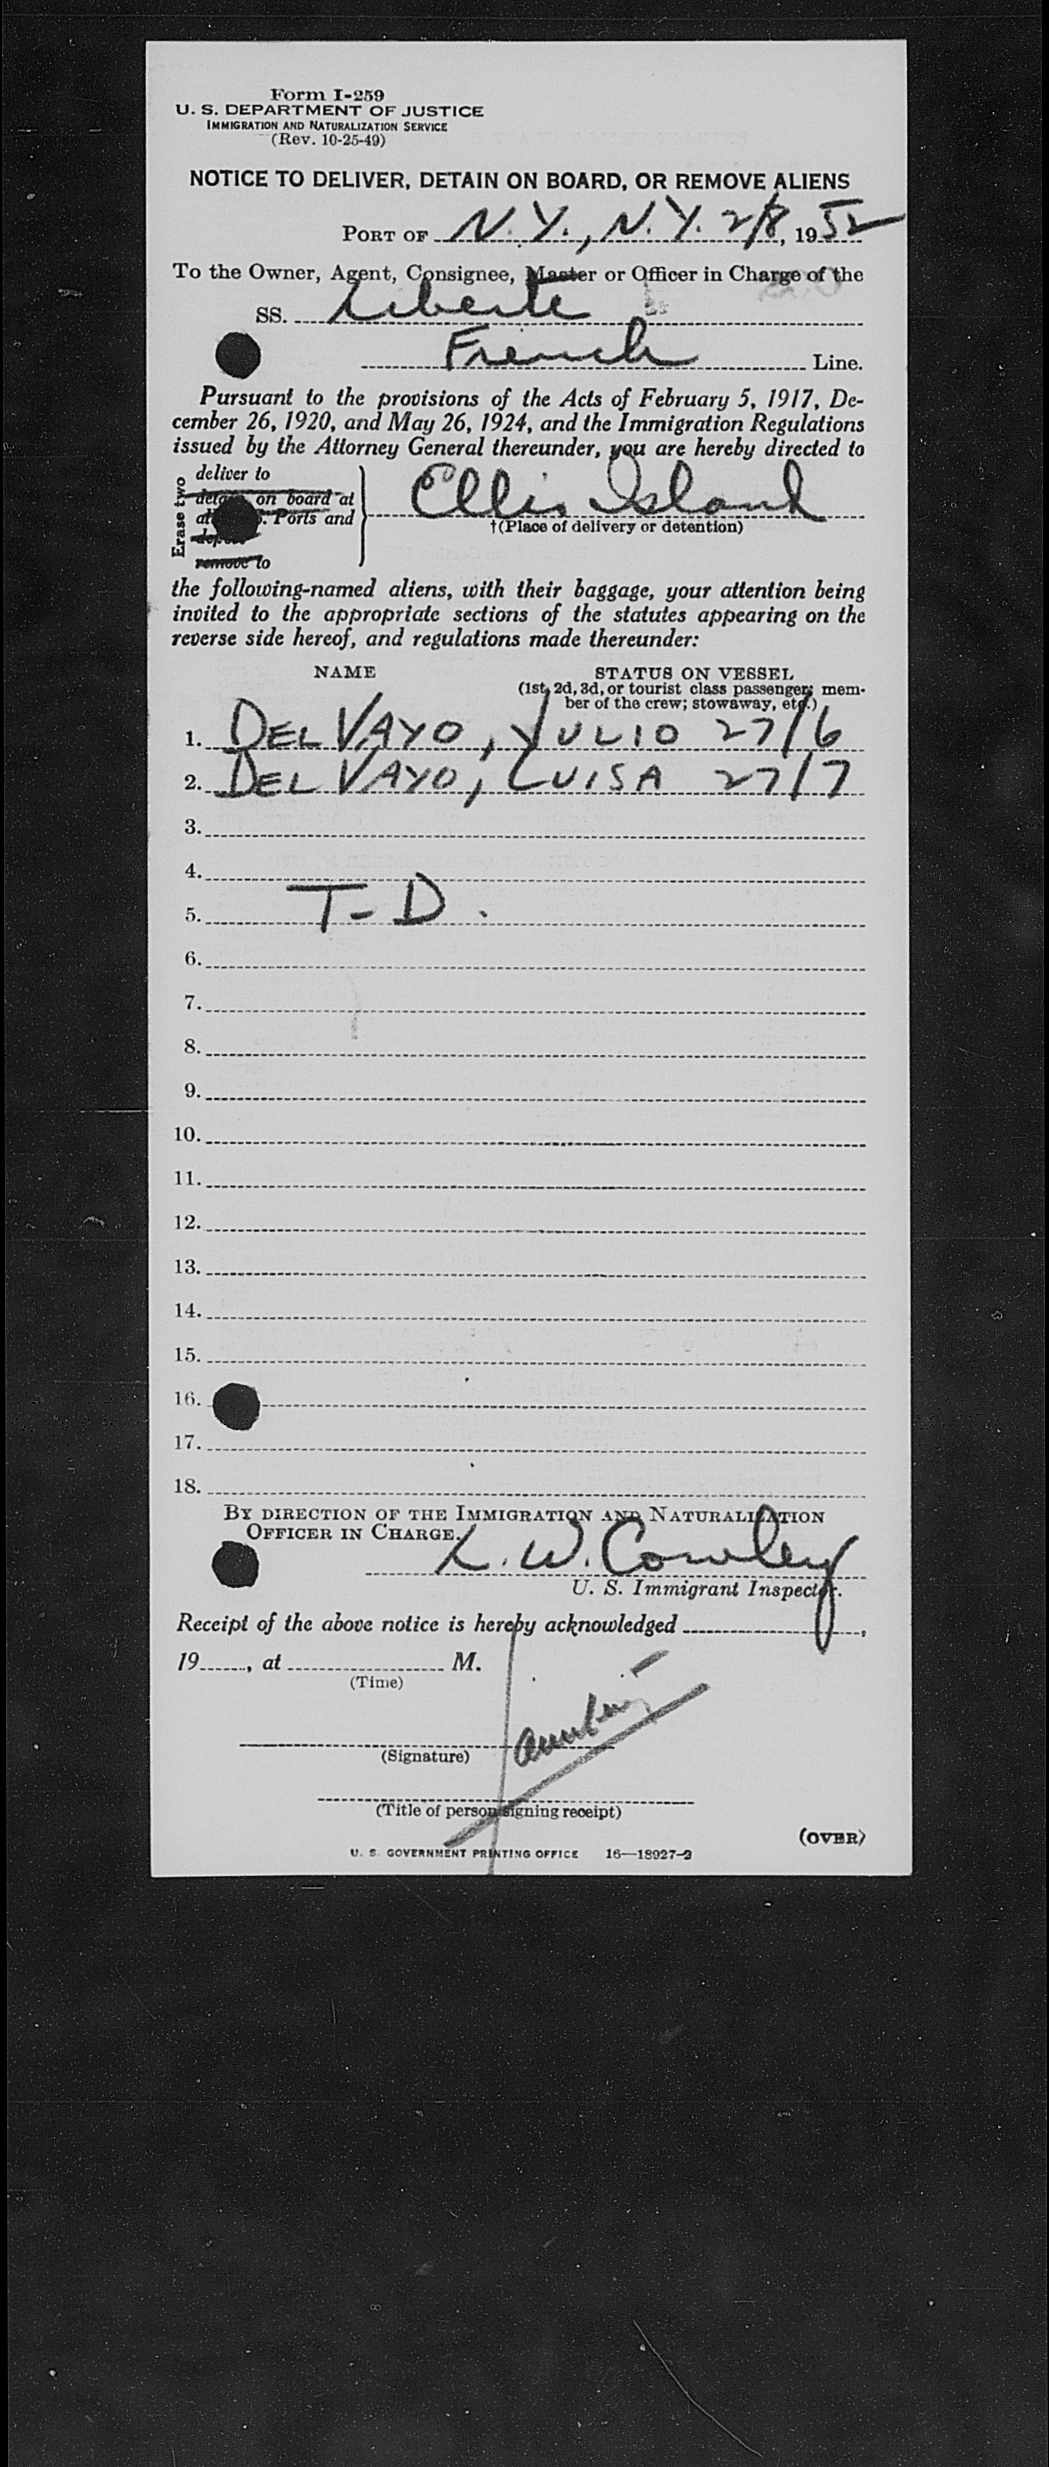 Form I-259
U. S. DEPARTMENT OF JUSTICE
IMMIGRATION AND NATURALIZATION SERVICE
(Rev. 10-25-49)
NOTICE TO DELIVER, DETAIN ON BOARD, OR REMOVE ALIENS
PORT OF N.Y., N.Y. 2/8, 1952
To the Owner, Agent, Consignee, Master or Officer in Charge of the
SS. Liberte
French Line.
Pursuant to the provisions of the Acts of February 5, 1917, De-
cember 26, 1920, and May 26, 1924, and the Immigration Regulations
issued by the Attorney General thereunder, you are hereby directed to
Erase two
deliver to
detain on board at
at . Ports and
remove to
Ellis Island
†(Place of delivery or detention)
the following-named aliens, with their baggage, your attention being
invited to the appropriate sections of the statutes appearing on the
reverse side hereof, and regulations made thereunder:
NAME STATUS ON VESSEL
(1st, 2d, 3d, or tourist class passenger; mem-
ber of the crew; stowaway, etc.)
1. DEL VAYO, YULIO 27/6
2. DEL VAYO, LUISA 27/7
3.
4.
5. T-D.
6.
7.
8.
9.
10.
11.
12.
13.
14.
15.
16.
17.
18.
BY DIRECTION OF THE IMMIGRATION AND NATURALIZATION
OFFICER IN CHARGE.
L. W. Cowley
U. S. Immigrant Inspector.
Receipt of the above notice is hereby acknowledged ,
19 , at M.
(Time)
(Signature)
(Title of person signing receipt)
(OVER)
U. S. GOVERNMENT PRINTING OFFICE 16—18927-2